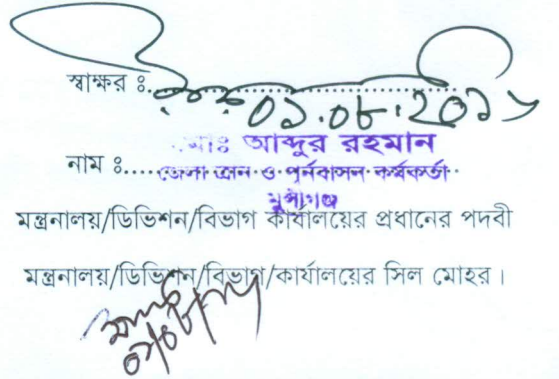 স্বাক্ষর ঃ.
০১.০৮.২০১
মোঃ আব্দুর রহমান
নাম ঃ.....জেলা ত্রান ও পূর্নবাসন কর্মকর্তা
মুন্সীগঞ্জ
মন্ত্রনালয়/ডিভিশন/বিভাগ কার্যালয়ের প্রধানের পদবী
মন্ত্রনালয়/ডিভিশন/বিভাগ/কার্যালয়ের সিল মোহর।